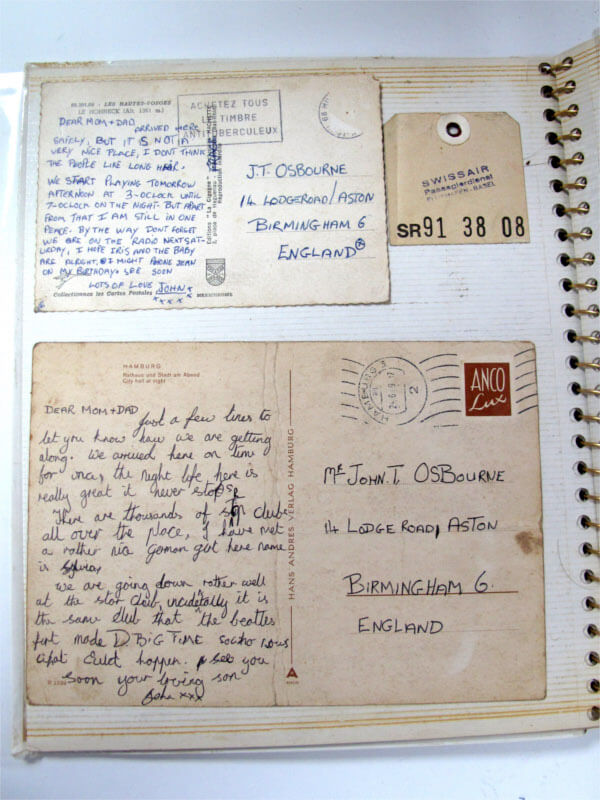 88.301.08 - LES HAUTES-VOSGES
LE HOHNECK (Alt. 1361 m.)
ACHETEZ TOUS
LE TIMBRE
ANTITUBERCULEUX
DEAR MOM + DAD
ARRIVED HERE
SAFELY, BUT IT IS NOT A
VERY NICE PLACE, I DONT THINK
THE PEOPLE LIKE LONG HAIR.
WE START PLAYING TOMORROW
AFTERNOON AT 3-OCLOCK UNTIL
7-OCLOCK ON THE NIGHT. BUT APART
FROM THAT I AM STILL IN ONE
PEACE. BY THE WAY DONT FORGET
WE ARE ON THE RADIO NEXT SAT-
URDAY, I HOPE IRIS AND THE BABY
ARE ALRIGHT. I MIGHT PHONE JEAN
ON MY BIRTHDAY. SEE SOON
LOTS OF LOVE JOHN x
x x x x
Collectionnez les Cartes Postales
Editions "La Cigogne"
J.T. OSBOURNE
14 LODGEROAD/ASTON
BIRMINGHAM 6
ENGLAND
SWISSAIR
Passagierdienst
SR91 38 08
HAMBURG
Rathaus und Stadt am Abend
City hall at night
DEAR MOM + DAD
Just a few lines to
let you know how we are getting
along. We arrived here on time
for once, the night life here is
really great it never stops
There are thousands of clubs
all over the place, I have met
a rather nice German girl here name
is Sylvia,
We are going down rather well
at the star club, incidentally it is
the same club that the beatles
first made D BIG TIME so who nows
what Could happen. see you
Soon your loving son
John xxx
HANS ANDRES VERLAG HAMBURG
HAMBURG
2
ANCO
Lux
Mr JOHN. T. OSBOURNE
14 LODGE ROAD, ASTON
BIRMINGHAM 6.
ENGLAND